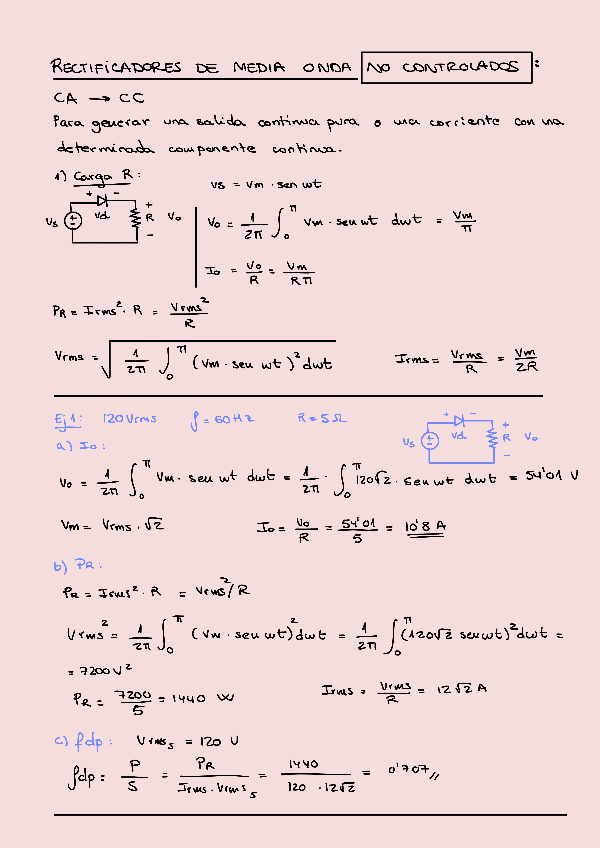 RECTIFICADORES DE MEDIA ONDA NO CONTROLADOS :
CA → CC
Para generar una salida continua pura o una corriente con una
determinada componente continua.
1) Carga R:
vs = Vm · sen wt
+ -
Vs Vd + R - Vo
Vo = 1/2π ∫₀^π Vm · sen wt dwt = Vm/π
Io = Vo/R = Vm/Rπ
PR = Irms² · R = Vrms²/R
Vrms = √(1/2π ∫₀^π (Vm · sen wt)² dwt)
Irms = Vrms/R = Vm/2R
Ej 1: 120 Vrms f = 60 Hz R = 5 Ω
+ -
Vs Vd + R - Vo
a) Io:
Vo = 1/2π ∫₀^π Vm · sen wt dwt = 1/2π · ∫₀^π 120√2 · sen wt dwt = 54'01 V
Vm = Vrms · √2
Io = Vo/R = 54'01/5 = 10'8 A
b) PR:
PR = Irms² · R = Vrms²/R
Vrms² = 1/2π ∫₀^π (Vm · sen wt)² dwt = 1/2π ∫₀^π (120√2 sen wt)² dwt =
= 7200 V²
PR = 7200/5 = 1440 W
Irms = Vrms/R = 12√2 A
c) fdp: Vrms_s = 120 V
fdp = P/S = PR/(Irms · Vrms_s) = 1440/(120 · 12√2) = 0'707 //